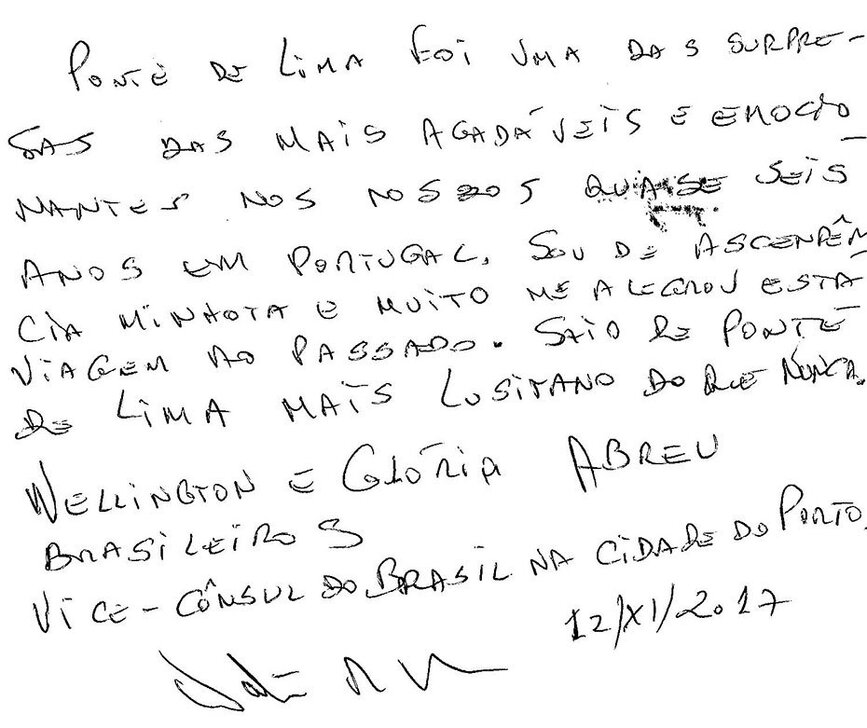 PONTE DE LIMA FOI UMA DAS SURPRE-
SAS DAS MAIS AGADÁVEIS E EMOCIO
NANTES NOS NOSSOS QUASE SEIS
ANOS EM PORTUGAL. SOU DE ASCENDÊN
CIA MINHOTA E MUITO ME ALEGROU ESTA
VIAGEM AO PASSADO. SAIO DE PONTE
DE LIMA MAIS LUSITANO DO QUE NUNCA.
WELLINGTON E GLÓRIA ABREU
BRASILEIROS
VICE-CÔNSUL DO BRASIL NA CIDADE DO PORTO.
12/XI/2017